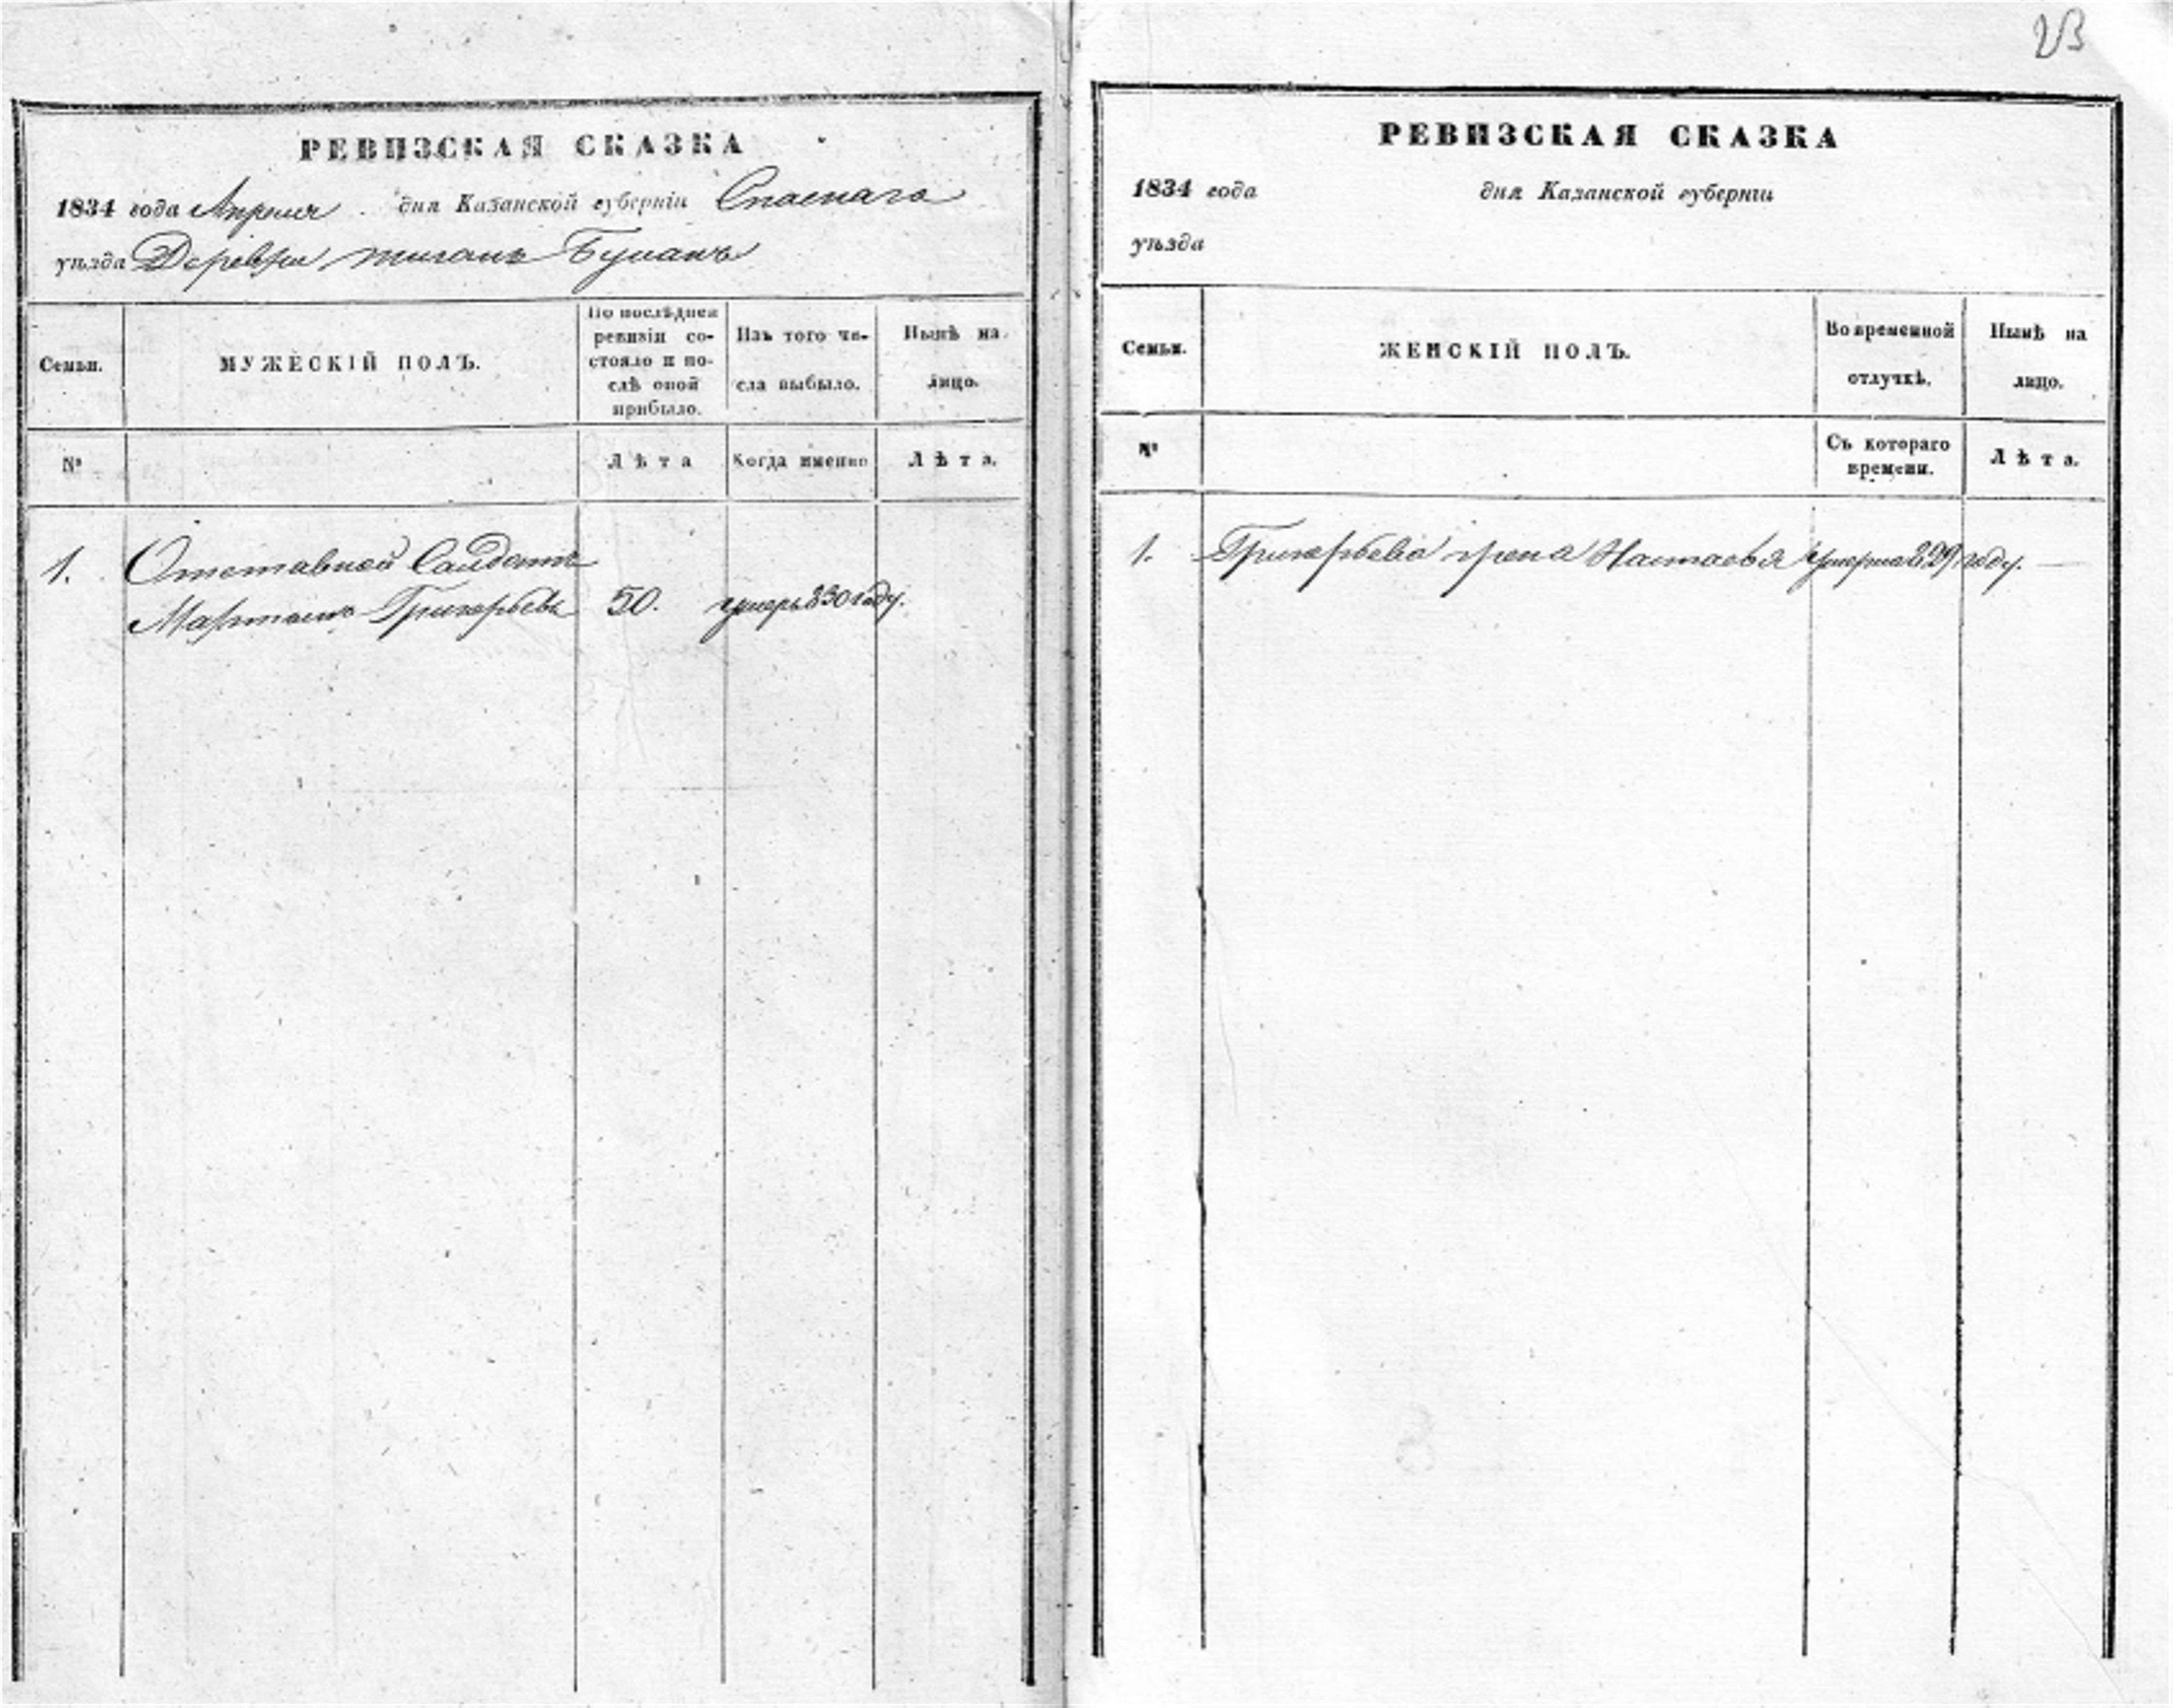 РЕВИЗСКАЯ СКАЗКА
1834 года Апреля дня Казанской губерніи Спаскаго
уѣзда Деревни тиганъ Буланъ
Семьи.
МУЖЕСКІЙ ПОЛЪ.
По послѣдней
ревизіи со-
стояло и по-
слѣ оной
прибыло.
Изъ того чи-
сла выбыло.
Нынѣ на
лицо.
№
Лѣта
Когда именно
Лѣта.
1.
Отставной Салдатъ
Григорьевъ 50. умеръ 830 году.
23
РЕВИЗСКАЯ СКАЗКА
1834 года дня Казанской губерніи
уѣзда
Семьи.
ЖЕНСКІЙ ПОЛЪ.
Во временной
отлучкѣ.
Нынѣ на
лицо.
№
Съ котораго
времени.
Лѣта.
1. Григорьева жена Настасья умерла 829 году.